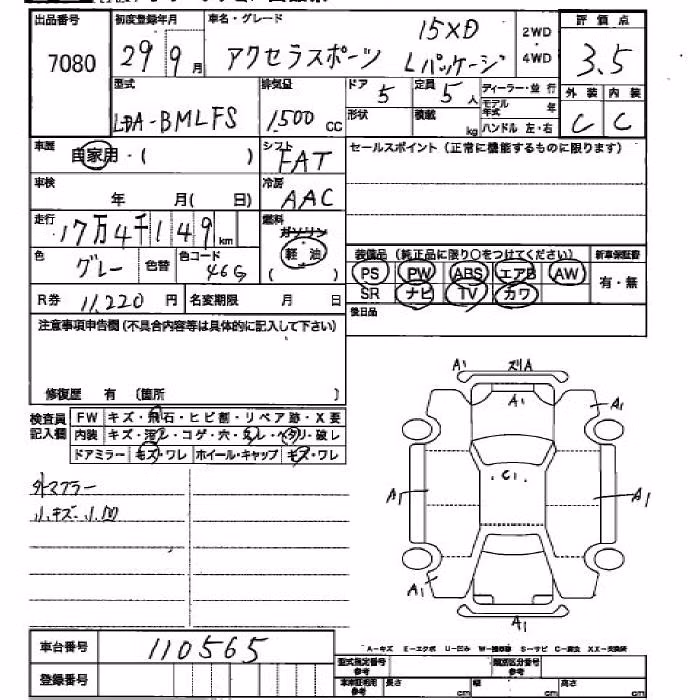 出品番号
7080
初度登録年月
29 9月
車名・グレード
アクセラスポーツ
15XD
Lパッケージ
2WD
4WD
評価点
3.5
型式
LDA-BMLFS
排気量
1500 CC
ドア
5
定員
5人
ディーラー・並行
モデル年式 年
ハンドル 左・右
外装 内装
C C
形状
積載 kg
車歴
自家用・( )
シフト
FAT
セールスポイント(正常に機能するものに限ります)
車検
年 月( 日)
冷房
AAC
走行
17万4千149km
燃料
ガソリン
軽油
( )
色
グレー
色替
色コード
46G
装備品(純正品に限り○をつけてください)
新車保証書
PS PW ABS エアB AW
有・無
SR ナビ TV カワ
R券 11,220 円
名変期限 月 日
後日品
注意事項申告欄(不具合内容等は具体的に記入して下さい)
修復歴 有 (箇所 )
検査員
記入欄
FW キズ・飛石・ヒビ割・リペア跡・X要
内装 キズ・汚レ・コゲ・穴・スレ・ヘタリ・破レ
ドアミラー キズ・ワレ ホイール・キャップ キズ・ワレ
外マフラー
小キズ小凹
A1
ズリA
A1
A1
C1
A1
A1
A1
A1
車台番号
110565
登録番号
A-キズ E-エクボ U-凹み W-補修跡 S-サビ C-腐食 XX-交換済
型式指定番号
参考
類別区分番号
参考
車庫証明用
参考
長さ cm
幅 cm
高さ cm